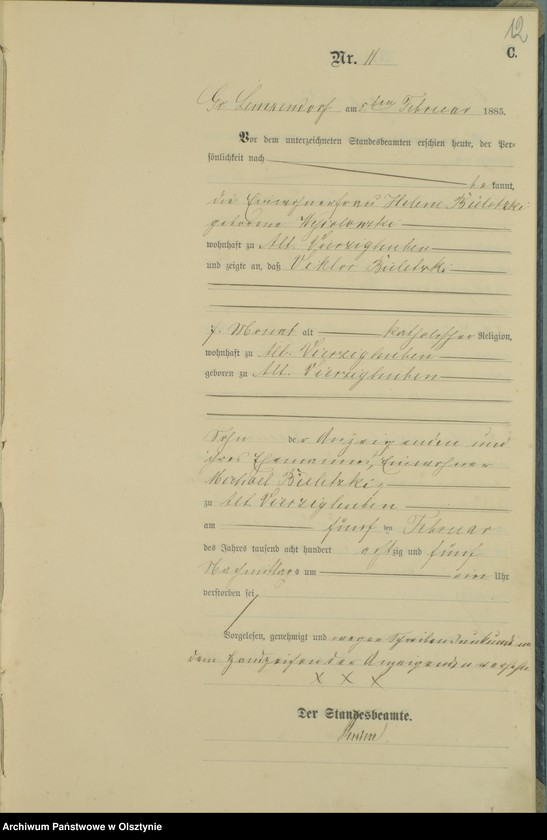 12
C.
Nr. 11
Gr Lemkendorf am 5ten Februar 1885.
Vor dem unterzeichneten Standesbeamten erschien heute, der Per-
sönlichkeit nach
bekannt,
die Einwohnerfrau Helene Bieletzki
geborene
wohnhaft zu Alt Vierzighuben
und zeigte an, daß Viktor Bieletzki
7 Monat alt katholischer Religion,
wohnhaft zu Alt Vierzighuben
geboren zu Alt Vierzighuben
Sohn der Anzeigenden und
ihres Ehemannes, Einwohner
Michael Bieletzki
zu Alt Vierzighuben
am fünf ten Februar
des Jahres tausend acht hundert achtzig und fünf
Nachmittags um ein Uhr
verstorben sei
Vorgelesen, genehmigt und wegen Schreibensunkunde
dem Handzeichen der Anzeigenden
x x x
Der Standesbeamte.
Archiwum Państwowe w Olsztynie